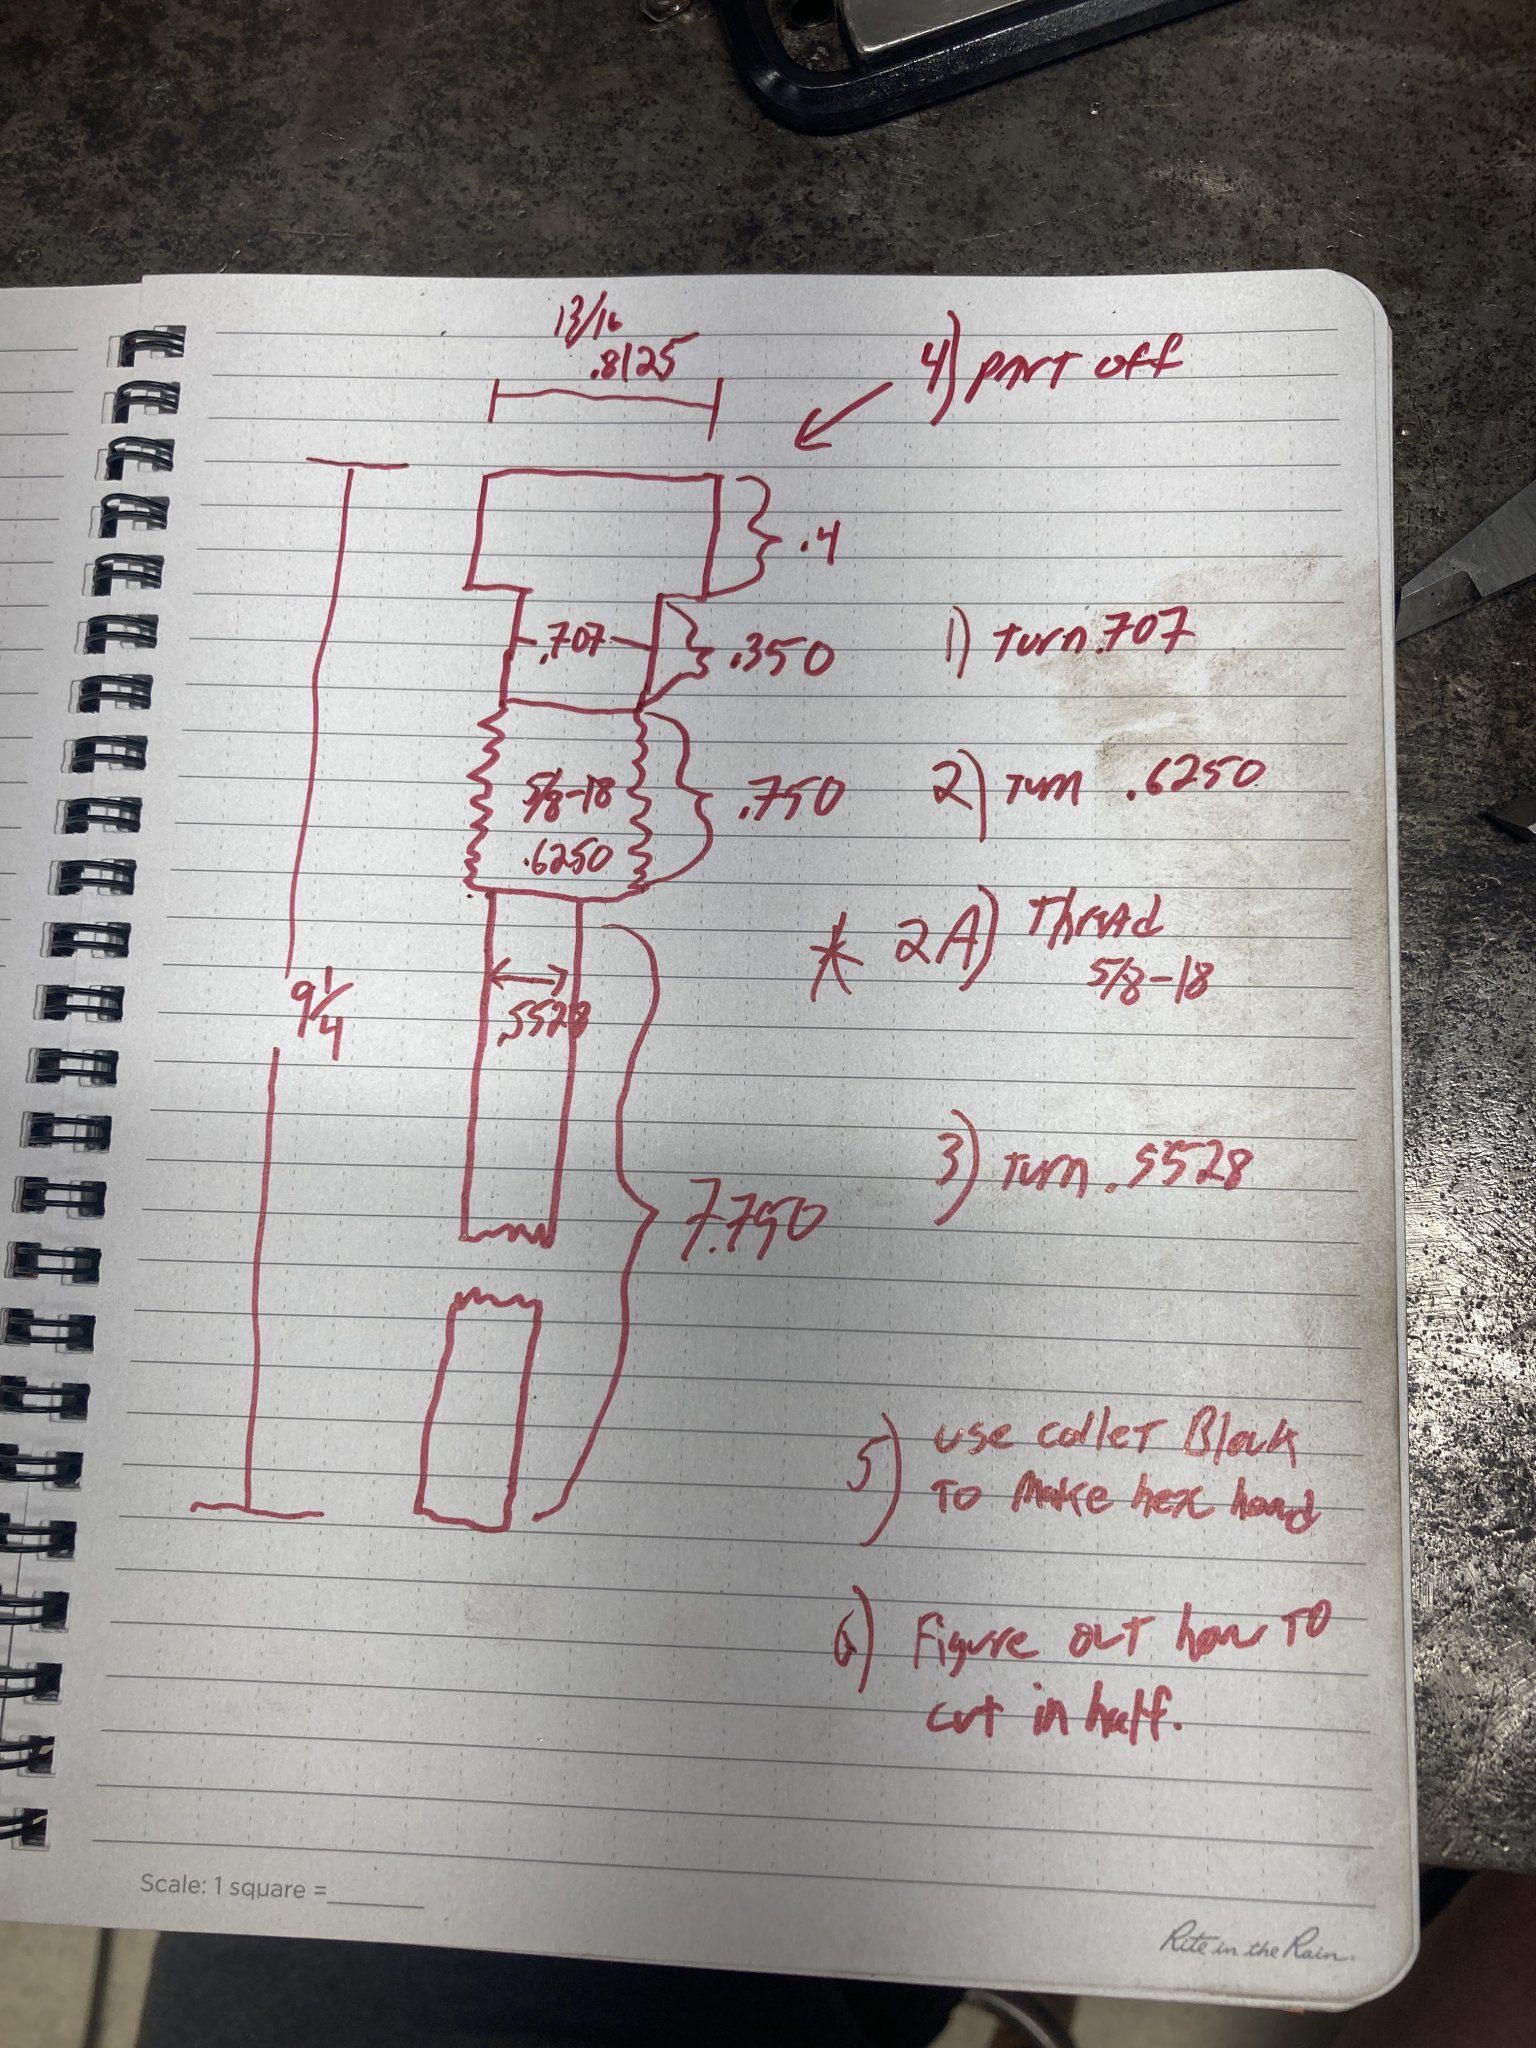 13/16
.8125
4) part off
.4
.707
.350
1) Turn .707
5/8-18
.6250
.750
2) Turn .6250
* 2A) Thread
5/8-18
9 1/4
.5528
3) Turn .5528
7.750
5) use collet Block
To Make hex head
6) Figure out how To
cut in half.
Scale: 1 square =
Rite in the Rain.